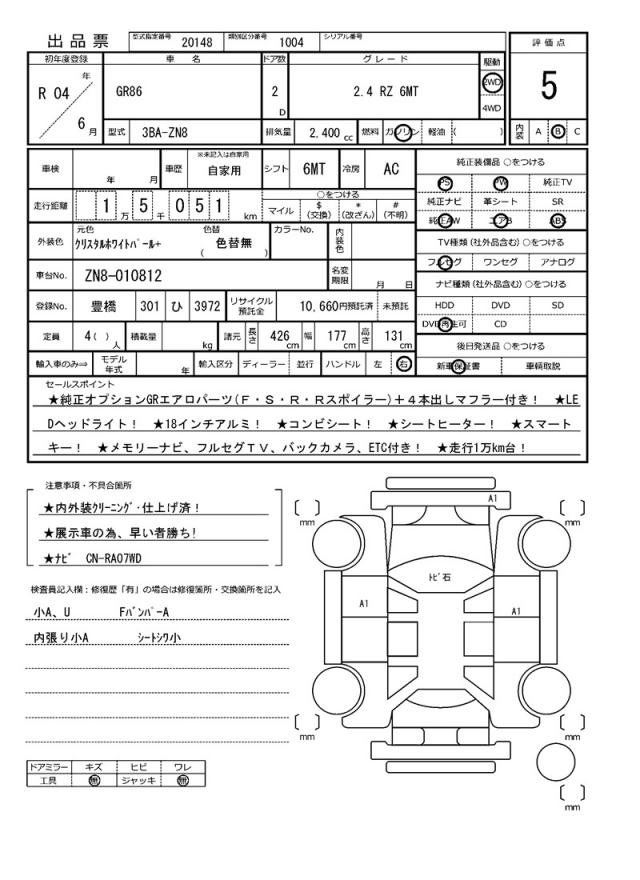 出品票 型式指定番号 20148 類別区分番号 1004 シリアル番号
評価点
5
内装 A B C
初年度登録 車名 ドア数 グレード 駆動
R 04 年 6 月 GR86 2 D 2.4 RZ 6MT 2WD 4WD
型式 3BA-ZN8 排気量 2,400 cc 燃料 ガソリン 軽油 ( )
車検 年 月 車歴 ※未記入は自家用 自家用 シフト 6MT 冷房 AC
走行距離 1 万 5 千 0 5 1 km ○をつける マイル $(交換) *(改ざん) #(不明)
外装色 元色 クリスタルホワイトパール+ 色替 ( 色替無 ) カラーNo. 内装色
車台No. ZN8-010812 名変期限 月 日
登録No. 豊橋 301 ひ 3972 リサイクル預託金 10,660円預託済 未預託
定員 4( ) 人 積載量 kg 諸元 長さ 426 cm 幅 177 cm 高さ 131 cm
輸入車のみ⇒ モデル年式 年 輸入区分 ディーラー 並行 ハンドル 左 右
純正装備品 ○をつける
PS PW 純正TV
純正ナビ 革シート SR
純正AW エアB ABS
TV種類(社外品含む)○をつける
フルセグ ワンセグ アナログ
ナビ種類(社外品含む)○をつける
HDD DVD SD
DVD再生可 CD
後日発送品 ○をつける
新車保証書 車輌取説
セールスポイント
★純正オプションGRエアロパーツ(F・S・R・Rスポイラー)+4本出しマフラー付き! ★LE
Dヘッドライト! ★18インチアルミ! ★コンビシート! ★シートヒーター! ★スマート
キー! ★メモリーナビ、フルセグTV、バックカメラ、ETC付き! ★走行1万km台!
注意事項・不具合箇所
★内外装クリーニング・仕上げ済!
★展示車の為、早い者勝ち!
★ナビ CN-RA07WD
検査員記入欄:修復歴「有」の場合は修復箇所・交換箇所を記入
小A、U FバンパーA
内張り小A シートシワ小
ドアミラー キズ ヒビ ワレ
工具 無 ジャッキ 無
A1
mm mm
トビ石
A1 A1
mm mm
mm